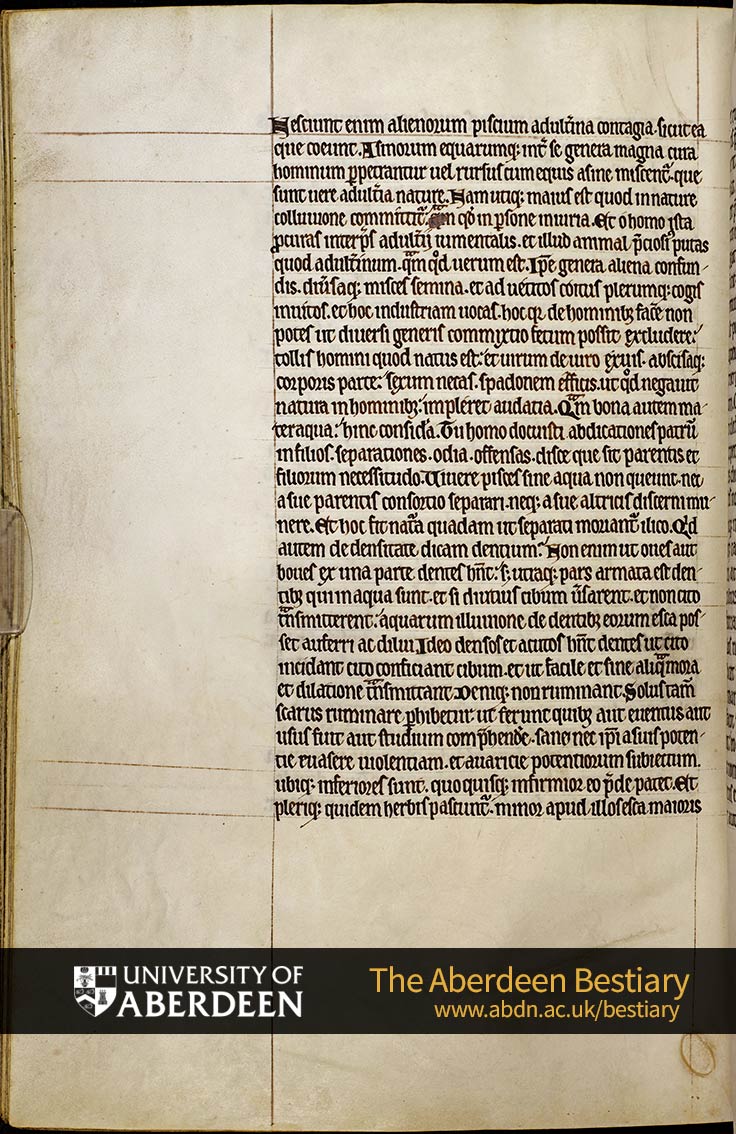 Nesciunt enim alienorum piscium adult͛ina contagia. sicut ea
que coeunt. Asinorum equarumq; int͛ se genera magna cura
hominum ꝑpetrantur uel rursus cum equis asine miscent᷑. que
sunt uere adult͛ia nature. Nam utiq; maius est quod in nature
colluuione committit᷑. in ꝑsone iniuria. Et o homo ista
ꝓcuras interp̄s adult͛ij iumentalis. et illud animal p̄ciosi᷒ putas
quod adult͛inum. qᵃm qͦd uerum est. Ip̄e genera aliena confun-
dis. diu͛saq; misces semina. et ad uetitos coitus plerumq; cogis
inuitos. et hoc industriam uocas. hoc de hominibꝫ fac͛e non
potes ut diuersi generis commixtio fetum possit excludere.
tollis homini quod natus est. et uirum de uiro exuis. abscisaq;
corporis parte. sexum negas. spadonem efficis. ut qͦd negauit
natura in hominibꝫ. impleret audatia. Qᵃm bona autem ma-
ter aqua. hinc consida. Tu homo docuisti abdicationes patrū
in filios. separationes. odia. offensas. disce que sit parentis et
filiorum necessitudo. Uiuere pisces sine aqua non queunt. nec
a sue parentis consortio separari. neq; a sue altricis discerni mu-
nere. Et hoc fit nat᷑a quadam ut separati moriant᷑ ilico. Qͥd
autem de densitate dicam dentium. Non enim ut oues aut
boues ex una parte dentes hn̄t. s; utraq; pars armata est den-
tibꝫ qui in aqua sunt. et si diutius cibum u͛sarent. et non cito
tᵃnsmitterent. aquarum illuuione de dentibꝫ eorum esca pos-
set auferri ac dilui. Ideo densos et acutos hn̄t dentes ut cito
incidant cito conficiant cibum. et ut facile et sine aliqᵃ mora
et dilatione tᵃnsmittant. Deniq; non ruminant. Solus tam̄
scarus ruminare ꝑhibetur ut ferunt quibꝫ aut euentus aut
usus fuit aut studium comp̄hende͛. sane nec ip̄i a suis poten-
tie euasere uiolentiam. et auaricie potentiorum subiectum.
ubiq; inferiores sunt. quo quisq; infirmior eo p̄de patet. Et
pleriq; quidem herbis pascunt᷑. minor apud illos esca maioris
UNIVERSITY OF
ABERDEEN
The Aberdeen Bestiary
www.abdn.ac.uk/bestiary